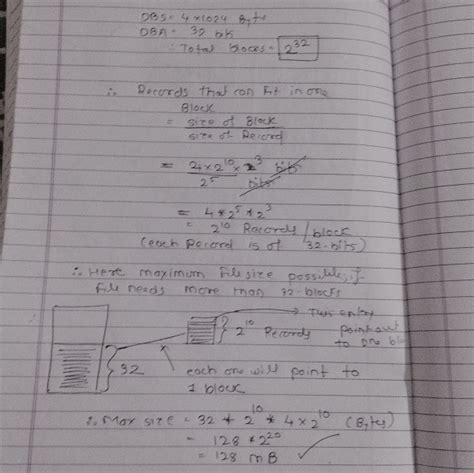 DBS = 4 x 1024 Bytes
DBA = 32 bit
∴ Total blocks = 2^32
∴ Records that can fit in one
Block
= size of Block
size of Record
= 4 x 2^10 x 2^3 bits
2^5 bits
= 4 * 2^5 * 2^3
= 2^10 Records / block
(each Record is of 32-bits)
∴ Here maximum file size possible, if
file needs more than 32-blocks
→ This entry
2^10 Records point out
to one
32
each one will point to
1 block
∴ Max size = 32 * 2^10 * 4 x 2^10 (Bytes)
= 128 * 2^20
= 128 MB ✓